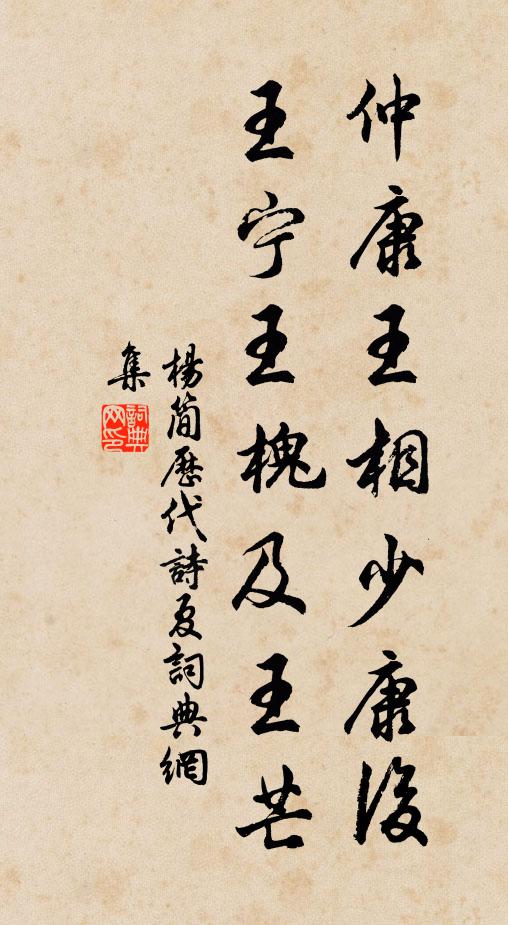 仲康王相少康後
王宁王槐及王芒
楊简歷代詩夏詞典網
集
詞典
网印